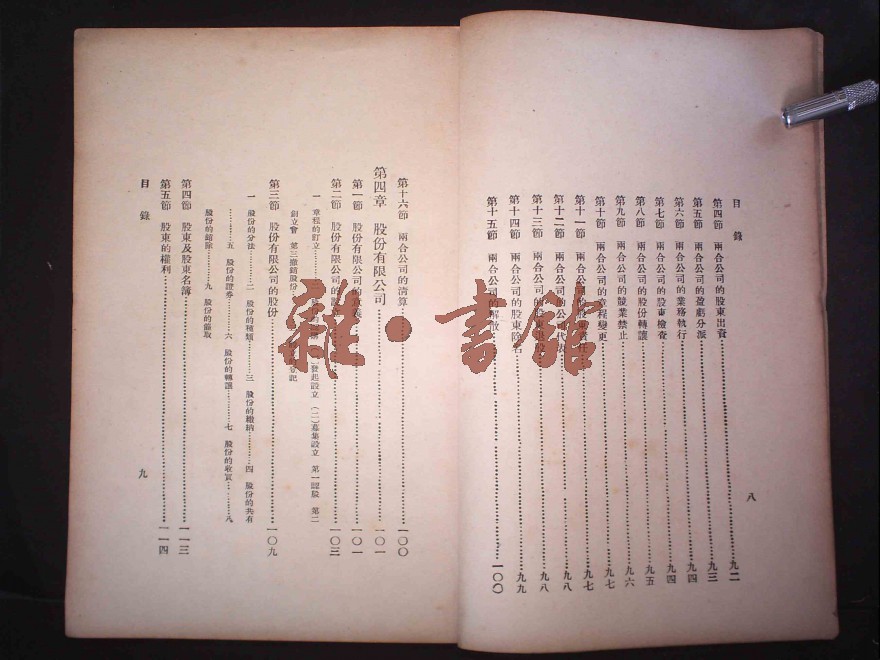 目錄
第四節 兩合公司的股東出資⋯⋯九二
第五節 兩合公司的盈虧分派⋯⋯九三
第六節 兩合公司的業務執行⋯⋯九四
第七節 兩合公司的股東檢查⋯⋯九四
第八節 兩合公司的股份轉讓⋯⋯九五
第九節 兩合公司的競業禁止⋯⋯九六
第十節 兩合公司的章程變更⋯⋯九七
第十一節 兩合公司的股東責任⋯⋯九七
第十二節 兩合公司的公司代表⋯⋯九八
第十三節 兩合公司的股東退股⋯⋯九八
第十四節 兩合公司的股東除名⋯⋯九九
第十五節 兩合公司的解散⋯⋯一〇〇
八
第十六節 兩合公司的清算⋯⋯一〇〇
第四章 股份有限公司⋯⋯一〇一
第一節 股份有限公司的意義⋯⋯一〇一
第二節 股份有限公司的設立⋯⋯一〇三
一 章程的訂立⋯⋯二 發起設立 (二)募集設立 第一認股 第二
創立會 第三撤銷股份 登記
第三節 股份有限公司的股份⋯⋯一〇九
一 股份的分法⋯⋯二 股份的種類⋯⋯三 股份的繳納⋯⋯四 股份的共有
⋯⋯五 股份的證券⋯⋯六 股份的轉讓⋯⋯七 股份的收買⋯⋯八
股份的銷除⋯⋯九 股份的
第四節 股東及股東名簿⋯⋯一一三
第五節 股東的權利⋯⋯一一四
目錄
九
雜·書館